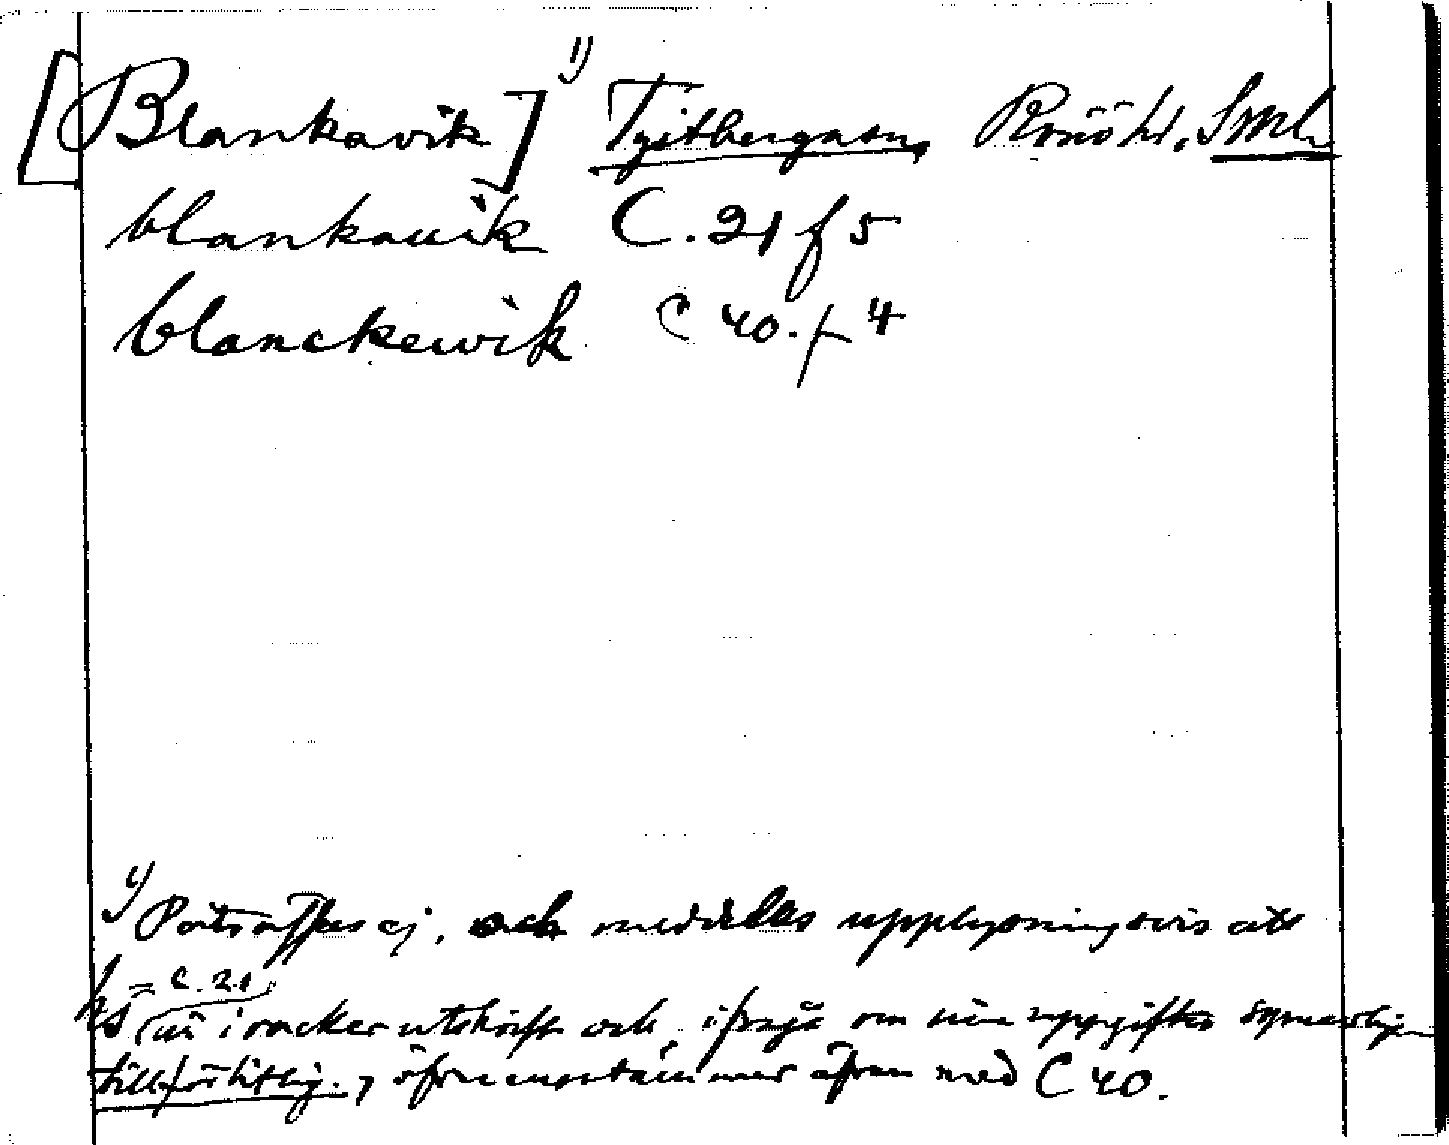 [Blankavik] 1) Tjistbergason, Rmöhd, Smål.
blankauik C. 21 f 5
blanckewik C 40. f 4
1) Påträffas ej, och meddelas upplysningsvis att
hs = C. 21 är i vacker utskrift och, i fråga om sina uppgifter synnerligen
tillförlitlig, öfverensstämmer äfven med C 40.